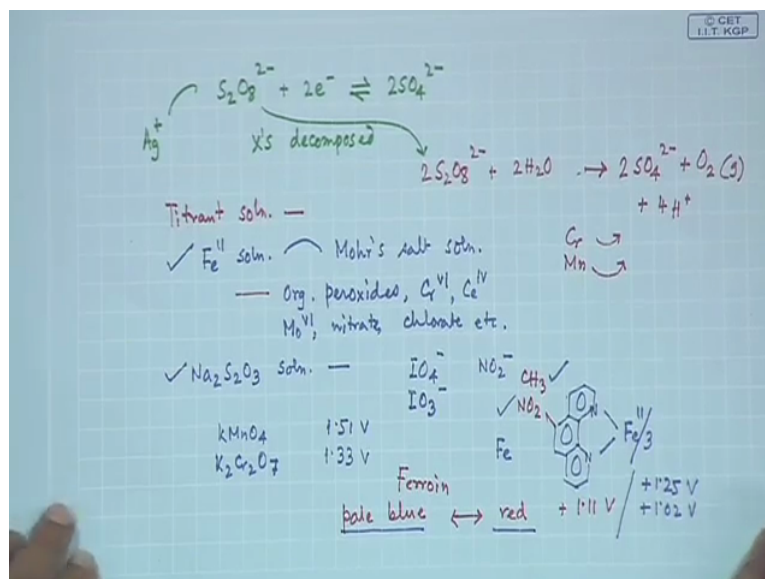 © CET
I.I.T. KGP
S₂O₈²⁻ + 2e⁻ ⇌ 2SO₄²⁻
Ag⁺
x's decomposed
2S₂O₈²⁻ + 2H₂O → 2SO₄²⁻ + O₂(g)
+ 4H⁺
Titrant soln. —
✓ Feᴵᴵ soln. Mohr's salt soln.
Cr
Mn
— Org. peroxides, Crⱽᴵ, Ceᴵⱽ
Moⱽᴵ, nitrate, chlorate etc.
✓ Na₂S₂O₃ soln. — IO₄⁻ NO₂⁻
IO₃⁻
CH₃ ✓
✓ NO₂
N
N
Feᴵᴵ/3
Fe
KMnO₄ 1.51 V
K₂Cr₂O₇ 1.33 V
Ferroin
pale blue ↔ red + 1.11 V
+1.25 V
+1.02 V